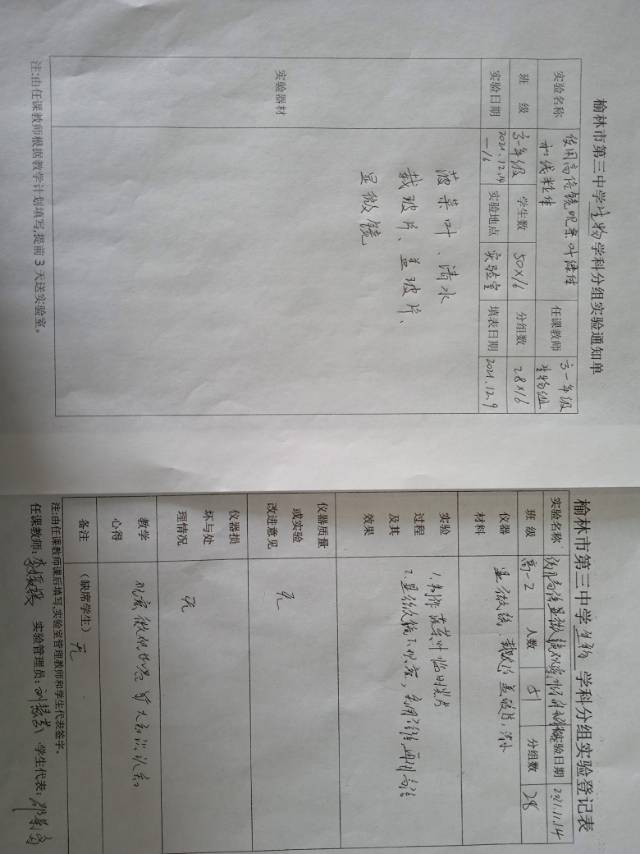 榆林市第三中学生物学科分组实验通知单
实验名称 使用高倍镜观察叶绿体和线粒体 任课教师 高一年级生物组
班 级 高一年级 学生数 50×16 分组数 28×16
实验日期 2021.12.14 —16 实验地点 实验室 填表日期 2021.12.9
实验器材
菠菜叶、清水
载玻片、盖玻片、
显微镜
注:由任课教师根据教学计划填写,提前3天送实验室。
榆林市第三中学生物学科分组实验登记表
实验名称 实验日期
班 级 高一2 人数 51 分组数 28
仪器材料 显微镜、载玻片 盖玻片
实验过程及其效果
1.制作菠菜叶临时装片
2.显微镜下观察,先用低倍,再用高倍
仪器质量或实验改进意见 无
仪器损坏与处理情况 无
教学心得
备注 (缺席学生) 无
注:由任课教师课后填写,实验室管理教师和学生代表签字。
任课教师: 实验管理员: 学生代表: